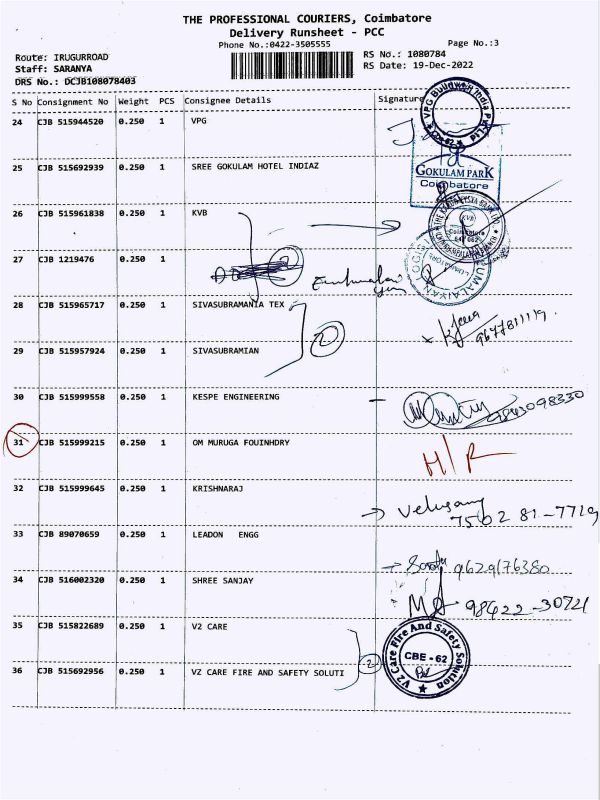 THE PROFESSIONAL COURIERS, Coimbatore
Delivery Runsheet - PCC
Phone No.:0422-3505555
Page No.:3
Route: IRUGURROAD
RS No.: 1080784
Staff: SARANYA
RS Date: 19-Dec-2022
DRS No.: DCJB108078403
S No Consignment No Weight PCS Consignee Details Signature
24 CJB 515944520 0.250 1 VPG
VPG Buildwell India Pvt Ltd
25 CJB 515692939 0.250 1 SREE GOKULAM HOTEL INDIAZ
GOKULAM PARK
Coimbatore
26 CJB 515961838 0.250 1 KVB
KVB
Coimbatore
641 062
27 CJB 1219476 0.250 1
2
28 CJB 515965717 0.250 1 SIVASUBRAMANIA TEX
9677811119
2
29 CJB 515957924 0.250 1 SIVASUBRAMIAN
30 CJB 515999558 0.250 1 KESPE ENGINEERING
9843098330
31 CJB 515999215 0.250 1 OM MURUGA FOUINHDRY
H/R
32 CJB 515999645 0.250 1 KRISHNARAJ
Velusamy
7502 81-7719
33 CJB 89070659 0.250 1 LEADON ENGG
9629176380
34 CJB 516002320 0.250 1 SHREE SANJAY
98422-30721
35 CJB 515822689 0.250 1 V2 CARE
V2 Care Fire And Safety Solution
CBE - 62
2
36 CJB 515692956 0.250 1 VZ CARE FIRE AND SAFETY SOLUTI